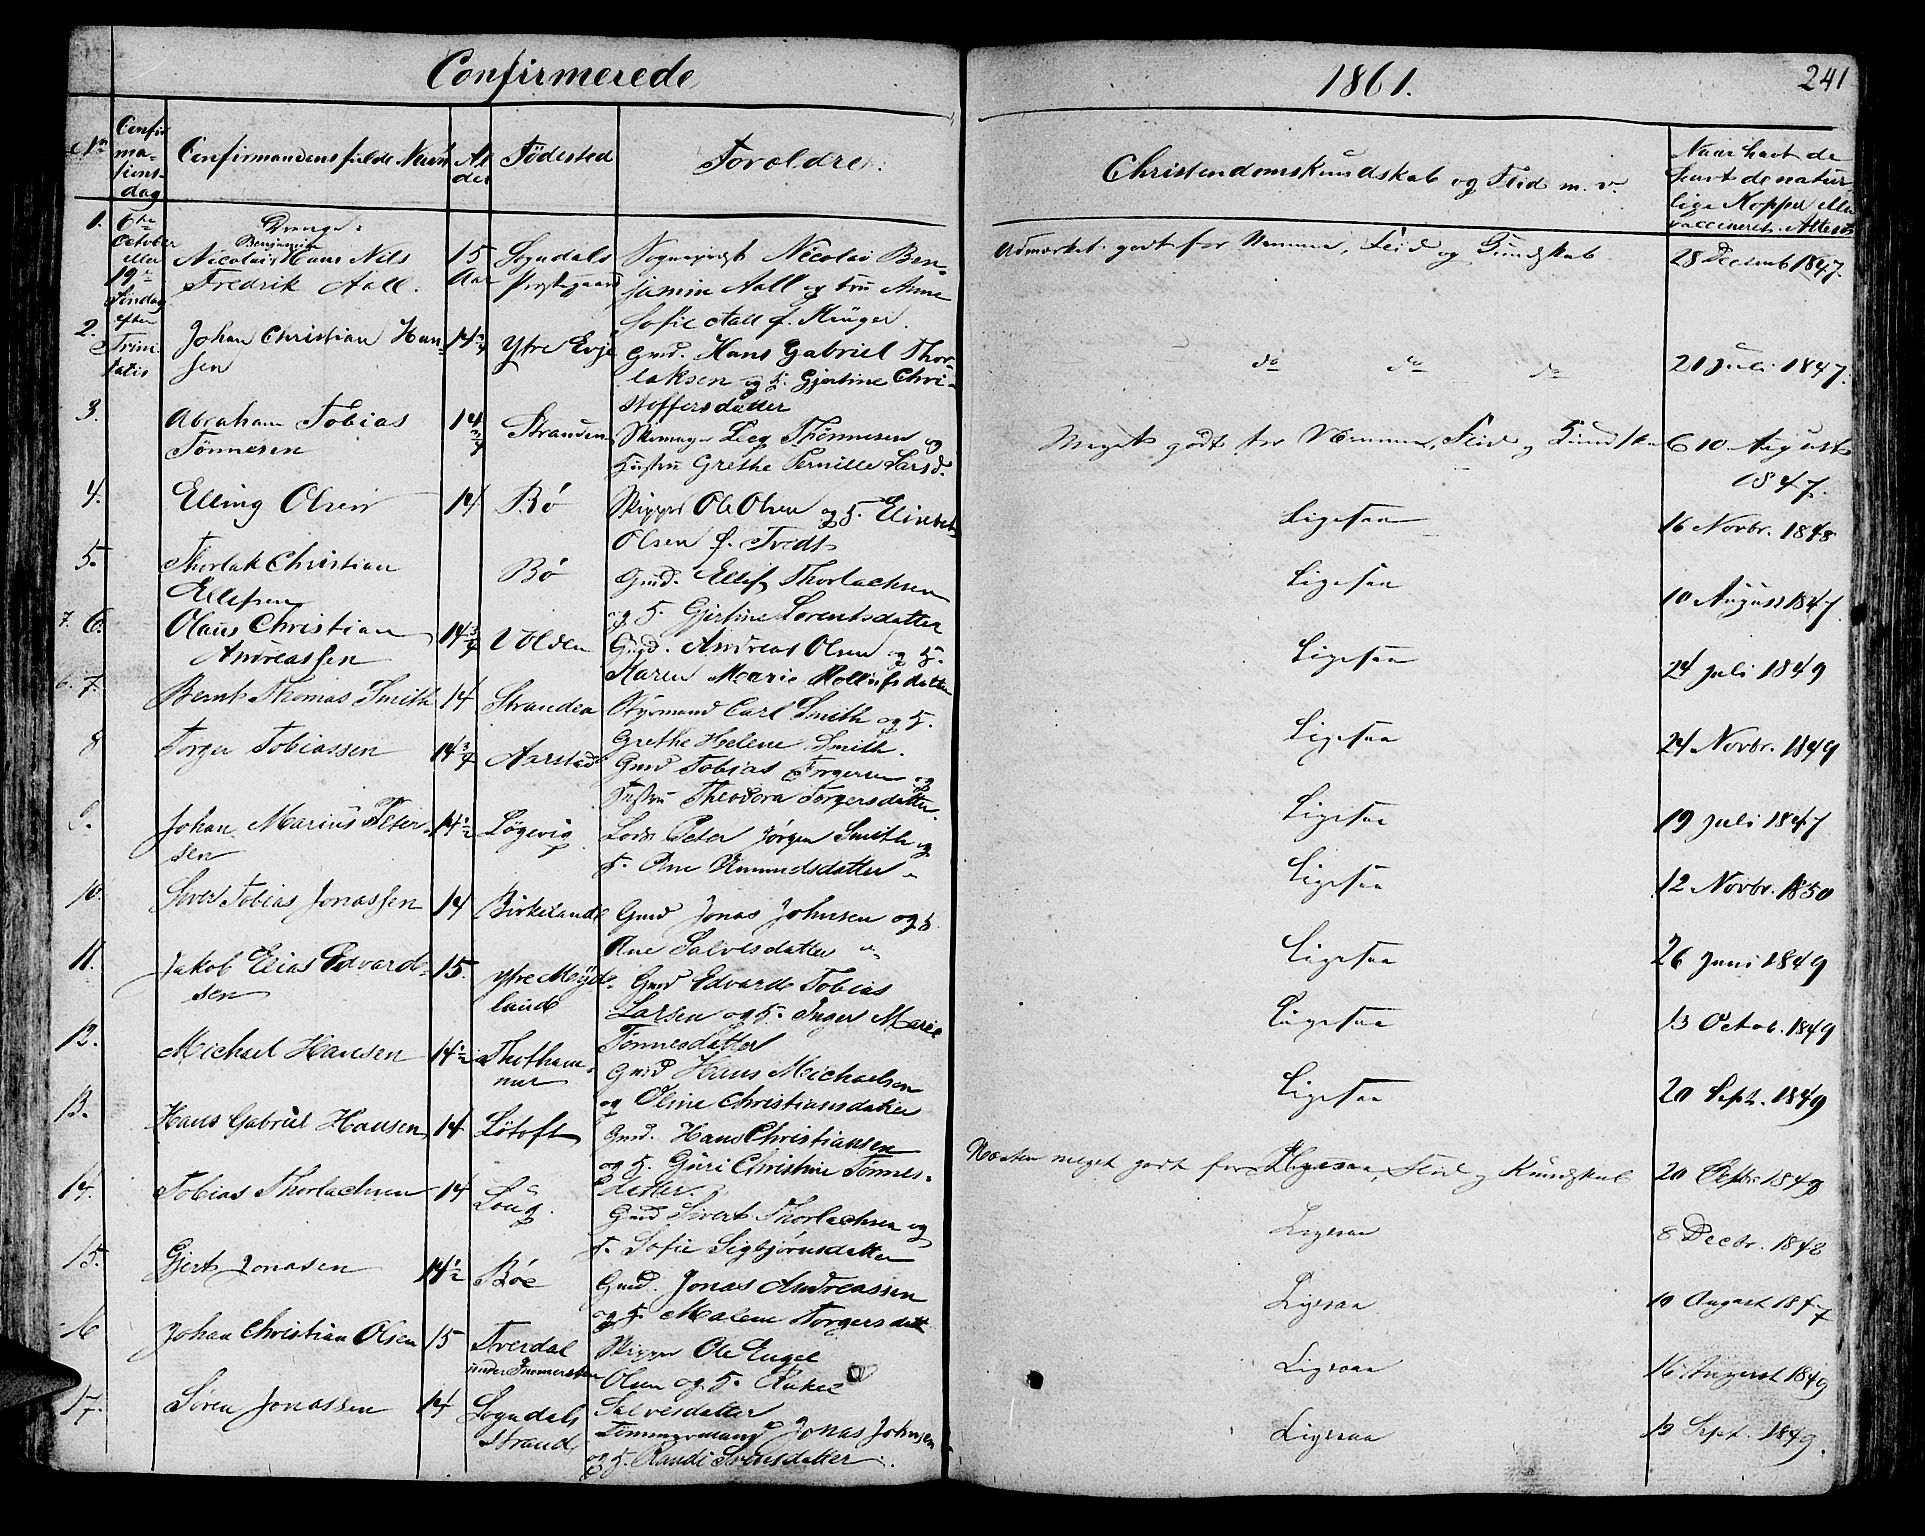 Confirmerede
1861.
241
No
Confir
ma-
sions-
dag
Confirmandens fulde Navn
Al
der
Födested
Foroldre.
Christendomskundskab og Flid m. v.
Naar havt de
havt de natur-
lige Kopper eller
vaccineret. Attest
1. 6te October eller 19de Søndag efter Trinitatis
Drenge:
Nicolai Benjamin Hans Nils
Fredrik Aall.
15
Aar
Sogndals
Prestegaard
Sognepræst Nicolai Ben-
jamin Aall og Fru Anne
Sofie Aall f. Krüger.
Udmærket godt for Nemme, Flid og Kundskab
28 Decemb 1847.
2.
Johan Christian Han-
sen
14 3/4
Ytre Evje
Gmd. Hans Gabriel Thor-
laksen og H. Gjertine Chri-
stoffersdatter
do do do
21 Juli 1847.
3.
Abraham Tobias
Tönnesen
14 3/4
Stranden
Skomager Thönnesen og
Hustru Grethe Pernille Larsd.
Meget godt for Nemme, Flid og Kundskab
10 August
1847.
4.
Elling Olsen
14
Bö
Skipper Ole Olsen og H. Elisabeth
Olsen f. Tvedt
Ligesaa
16 Novbr. 1848
5.
Thorlak Christian
Ellefsen
Bö
Gmd. Ellef Thorlachsen
og H. Gjertine Lorentsdatter
Ligesaa
10 August 1847.
7. 6.
Olaus Christian
Andreassen
14 3/4
Volden
Gmd. Andreas Olsen og H.
Karen Marie Rolleifsdatter
Ligesaa
24 Juli 1849
6. 7.
Bernt Thomas Smith
14
Stranden
Styrmand Carl Smith og H.
Grethe Helene Smith.
Ligesaa
24 Novbr. 1849
8
Torger Tobiassen
14 3/4
Aarstad
Gmd Tobias Torgersen og
Hustru Theodora Torgersdatter.
Ligesaa
19 Juli 1847
9.
Johan Marius Peter-
sen
14 1/2
Løgevig
Lods Peter Jörgen Smith og
H. Ane Amundsdatter
Ligesaa
12 Novbr. 1850
10.
Siver Tobias Jonassen
14
Birkeland
Gmd Jonas Johnsen og H.
Ane Salvesdatter
Ligesaa
26 Juni 1849
11.
Jakob Elias Edvard-
sen
15.
Ytre Mydt-
land
Gmd Edvard Tobias
Larsen og H. Inger Marie
Tönnesdatter
Ligesaa
13 Octob. 1849
12.
Michael Hansen
14 1/2
Thotham-
mer
Gmd Hans Michaelsen
og Oline Christiansdatter
Ligesaa
20 Sept. 1849
13.
Hans Gabriel Hansen
14
Løtoft
Gmd. Hans Christiansen
og H. Guri Christine Tønnes-
datter.
Næsten meget godt for Flid og Kundskab
20 Septbr 1849
14.
Tobias Thorlachsen
14
Gmd Sivert Thorlachsen og
H. Sofie Sigbjörnsdatter
Ligesaa
8 Decbr. 1848
15.
Gjert Jonasen
14 1/2
Böe
Gmd. Jonas Andreassen
og H. Malene Torgersdatt
Ligesaa
10 August 1847
16
Johan Christian Olsen
15
Tverdal
Skipper Ole Engel
Olsen og H.
Salvesdatter
Ligesaa
16 August 1849
17.
Sören Jonassen
14
Sogndals
Strand
Tömmermand Jonas Johnsen
og H. Randi Sivertsdatter.
Ligesaa
19 Sept. 1849.